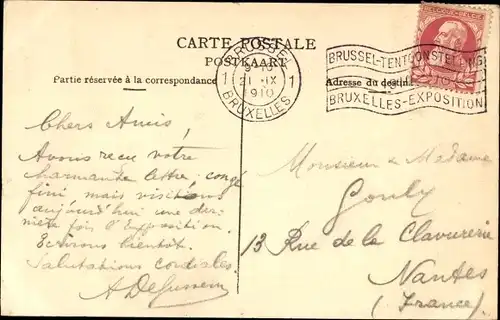 CARTE POSTALE
POSTKAART
Partie réservée à la correspondance
Adresse du destin
BRUSSEL
9-10
1 21 IX 1
1910
BRUXELLES
BRUSSEL-TENTOONSTELLING
1910
BRUXELLES-EXPOSITION
BELGIQUE-BELGIE
Chers Amis,
Avons reçu votre
charmante lettre. congé
fini mais visitions
aujourd'hui une der
nière fois l'Exposition.
Ecrirons bientôt.
Salutations cordiales.
Monsieur & Madame
13 Rue de la Clavurerie
Nantes
(France)